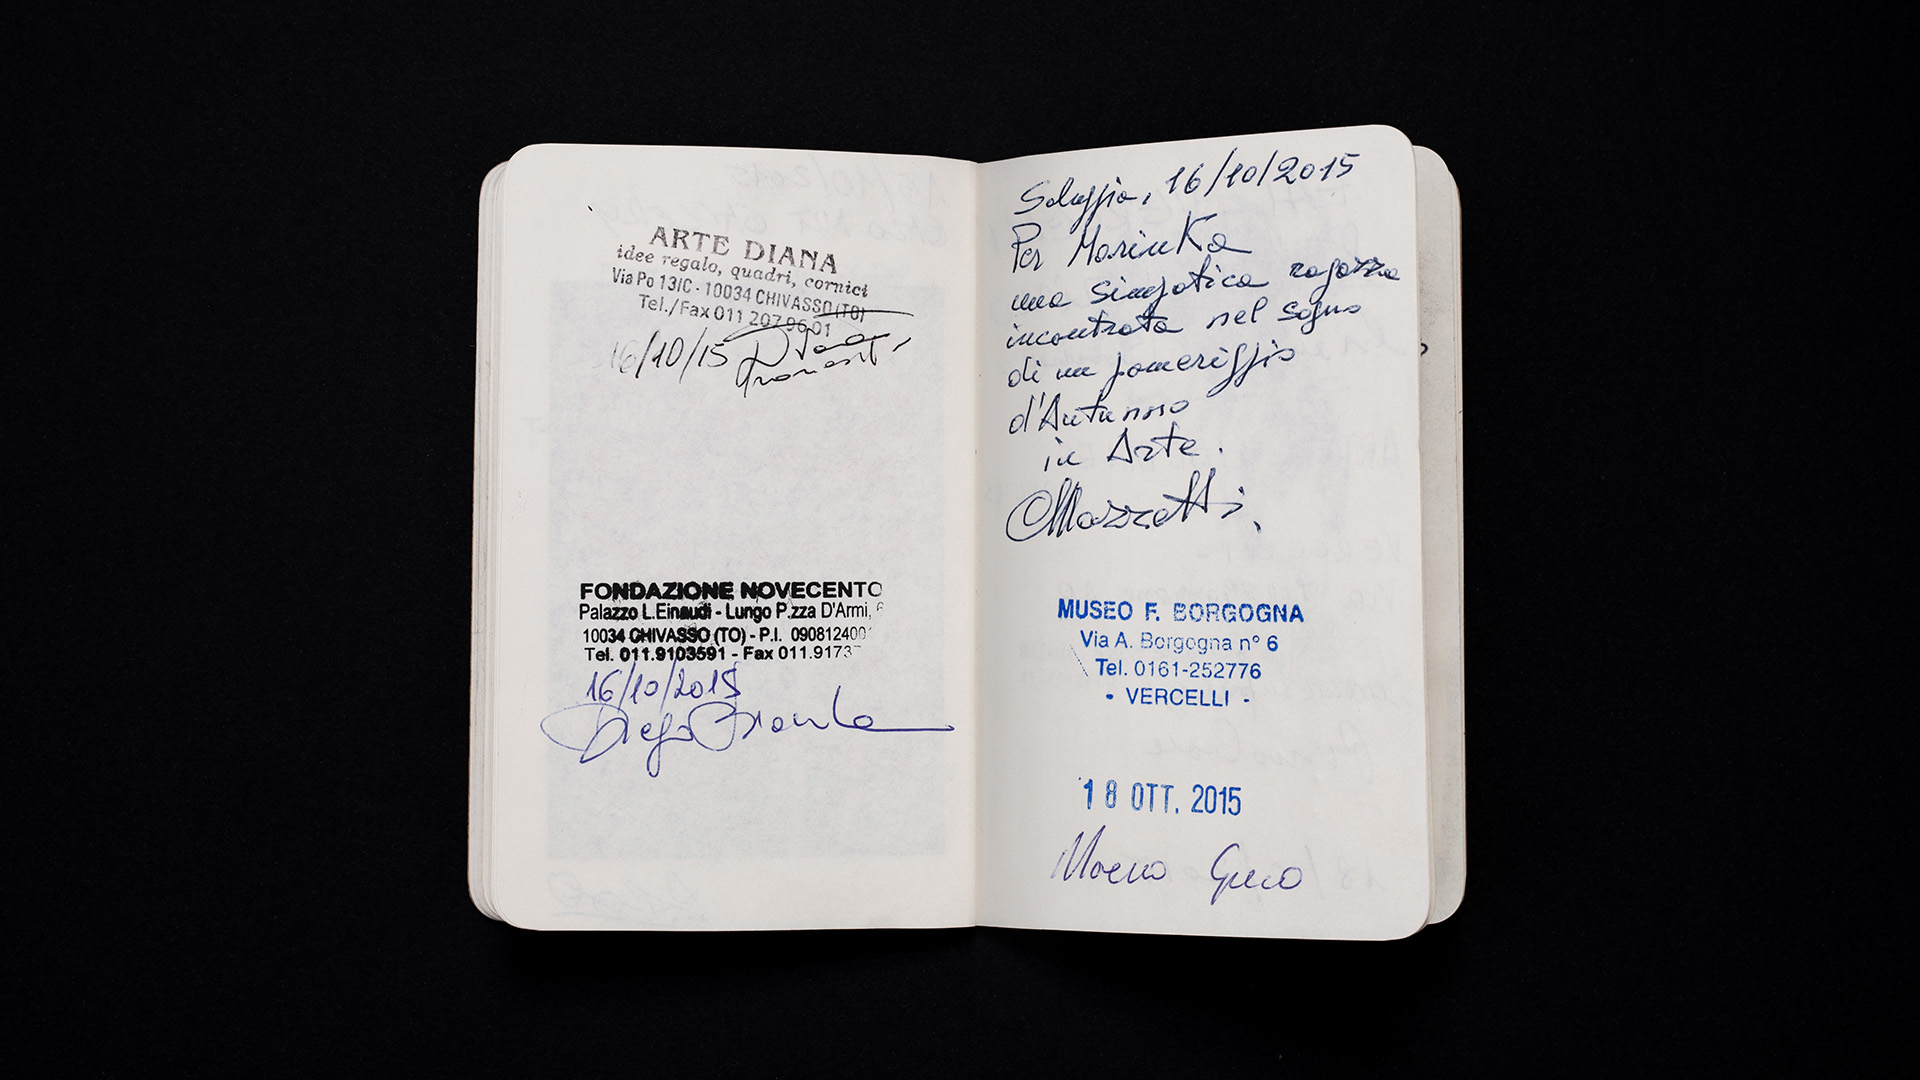 ARTE DIANA
idee regalo, quadri, cornici
Via Po 13/C - 10034 CHIVASSO (TO)
Tel./Fax 011 207 96 01
16/10/15
FONDAZIONE NOVECENTO
Palazzo L.Einaudi - Lungo P.zza D'Armi, 6
10034 CHIVASSO (TO) - P.I. 0908124001
Tel. 011.9103591 - Fax 011.9173
16/10/2015
Diego
Saluggia, 16/10/2015
Per MarinKa
una simpatica ragazza
incontrata nel sogno
di un pomeriggio
d'Autunno
in Arte.
Mazzotti
MUSEO F. BORGOGNA
Via A. Borgogna n° 6
Tel. 0161-252776
- VERCELLI -
18 OTT. 2015